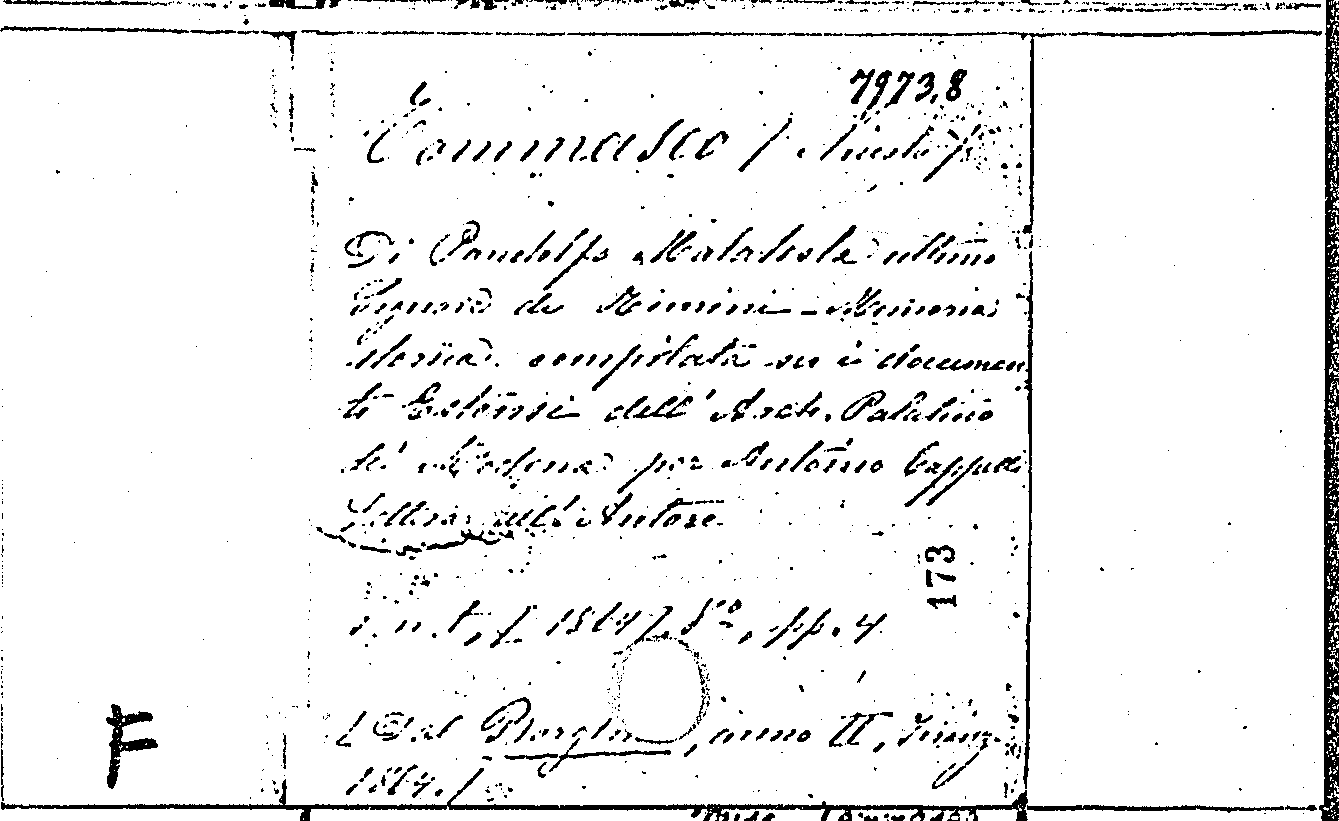 7973.8
Tommaseo /
Di Pandolfo Malatesta ultimo
Signore di Rimini - Memoria
storica compilata su i documen
ti Estensi dell' Arch. Palatino
di Modena per Antonio Cappelli
Lettera all' Autore
173
s. n. t., [1864], 8º, pp. 4
[Dal Borghini, anno II, Firenze
1864.]
F